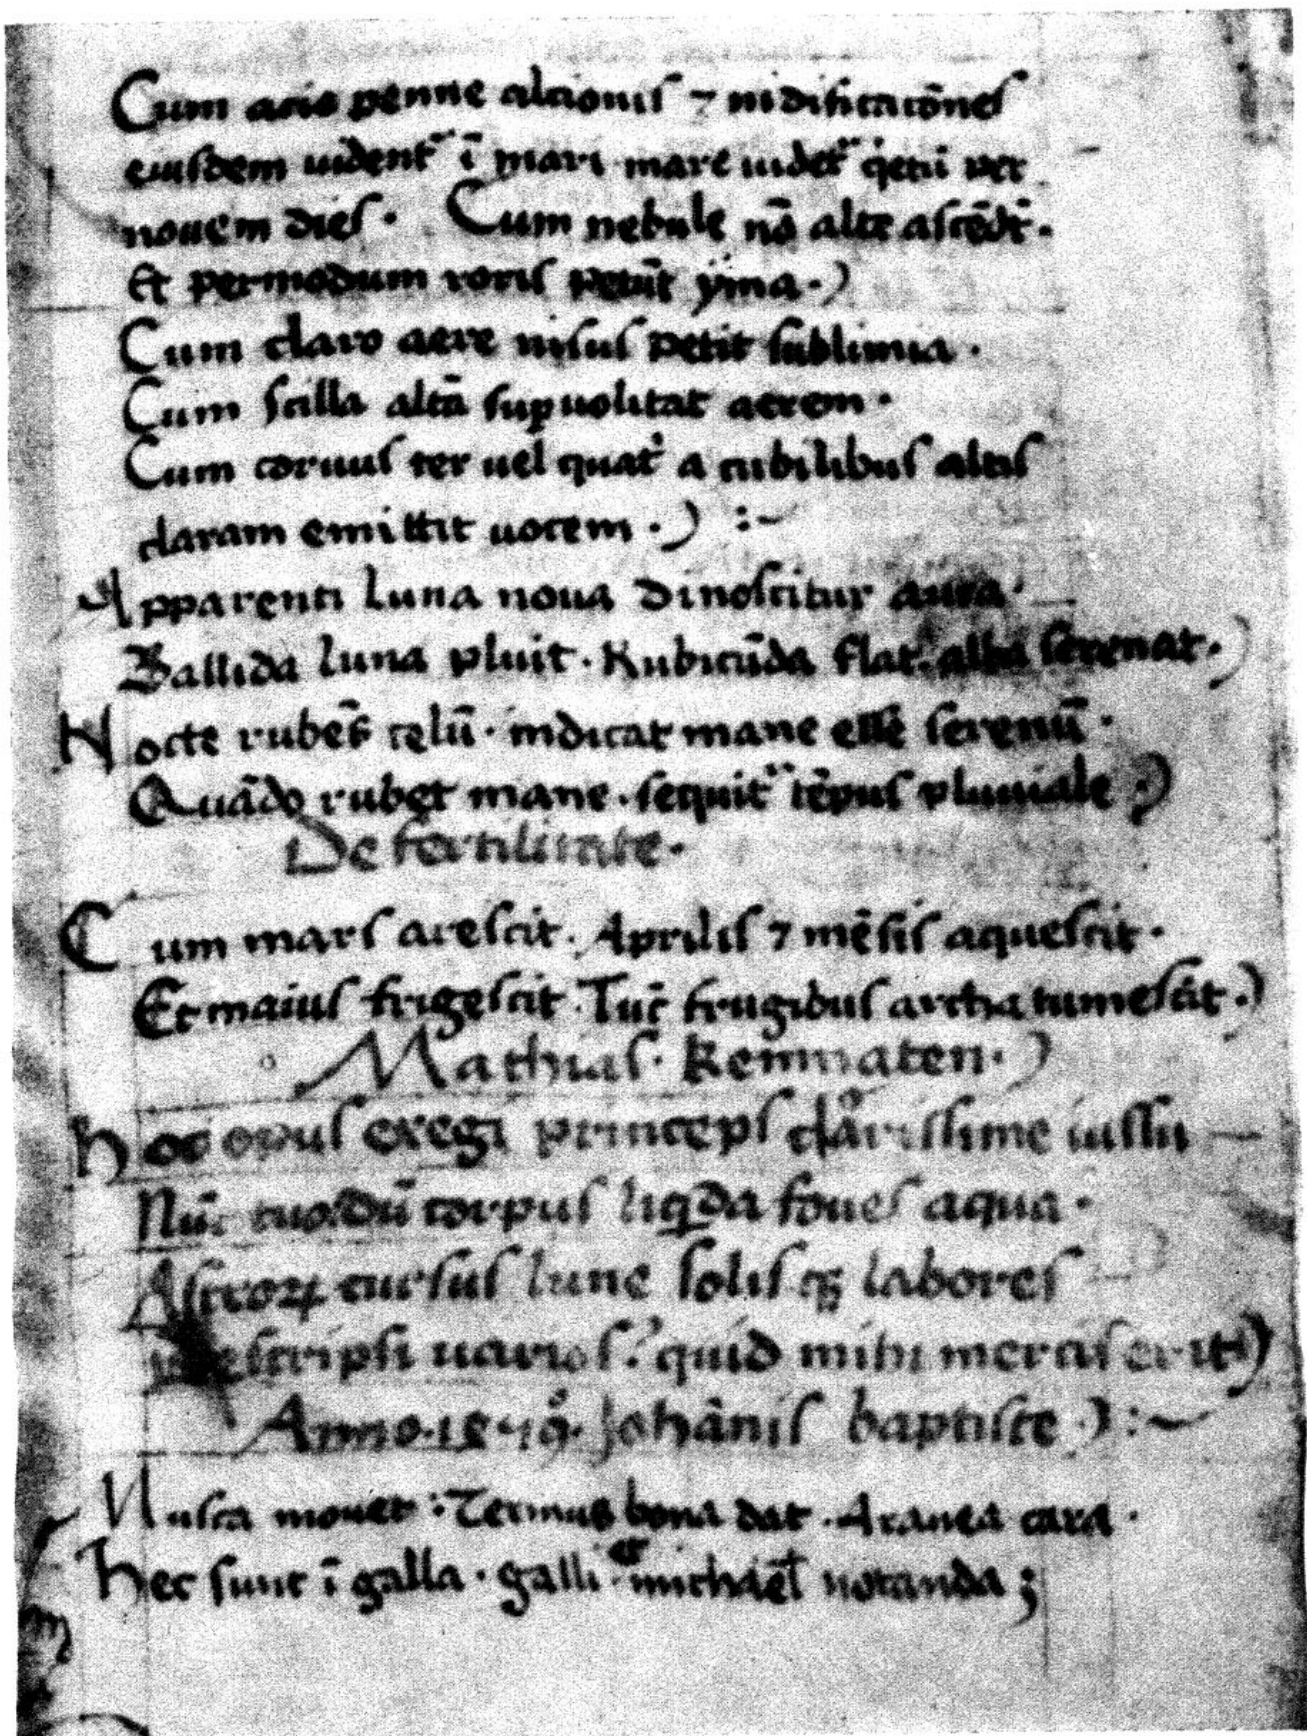 Cum acie penne alcionis ⁊ nidificatiōnes
eiusdem uident᷑ ī mari mare uidet᷑ q̇etū per
nouem dies · Cum nebule nō alte ascēdt̄ ·
Et permodum roris petūt yma ·)
Cum claro aere nisus petit sublimia ·
Cum scilla altā suꝑuolitat aerem ·
Cum coruus ter uel quat᷑ a cubilibus altis
claram emittit uocem ·) :~
Apparenti luna noua dinoscitur aura ·
Pallida luna pluit · Rubicūda flat · alba serenat ·)
Nocte rubēs celū · indicat mane esse serenū ·
Quādo rubet mane · sequit᷑ tēpus pluuiale ·)
De fertilitate ·
Cum mars arescit · Aprilis ⁊ mēsis aquescit ·
Et maius frigescit · Tūc frugibus archa tumescit ·)
Mathias · Kemnaten ·)
Hoc opus exegi princeps clarissime iussu
Nūc tuo dū corpus liqͥda foues aqua ·
Astroꝝ cursus lune solisqꝫ labores
descripsi uarios ? quid mihi mercis erit ·)
Anno · Johānis baptiste ·) :~
Musca mouet : Termus bona dat · Aranea cara ·
Hec sunt ī galla · galli et michael̄ notanda ;